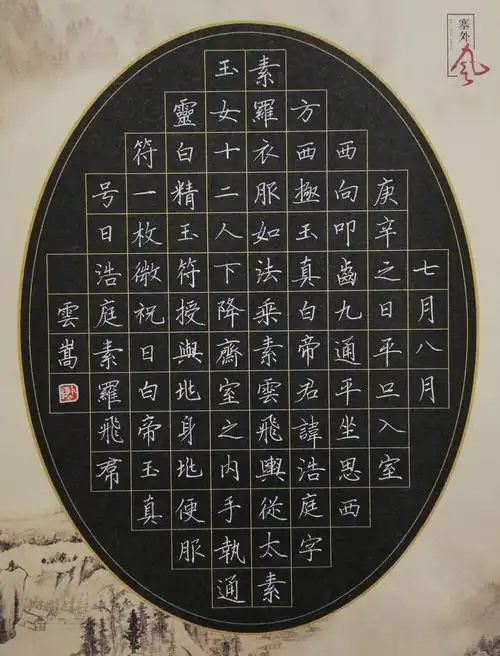 塞外
风
七月八月
庚辛之日平旦入室
西向叩齒九通平坐思西
方西極玉真白帝君諱浩庭字
素羅衣服如法乘素雲飛輿從太素
玉女十二人下降齋室之内手執通
靈白精玉符授與兆身兆便服
符一枚微祝曰白帝玉真
号曰浩庭素羅飛帬
雲嵩